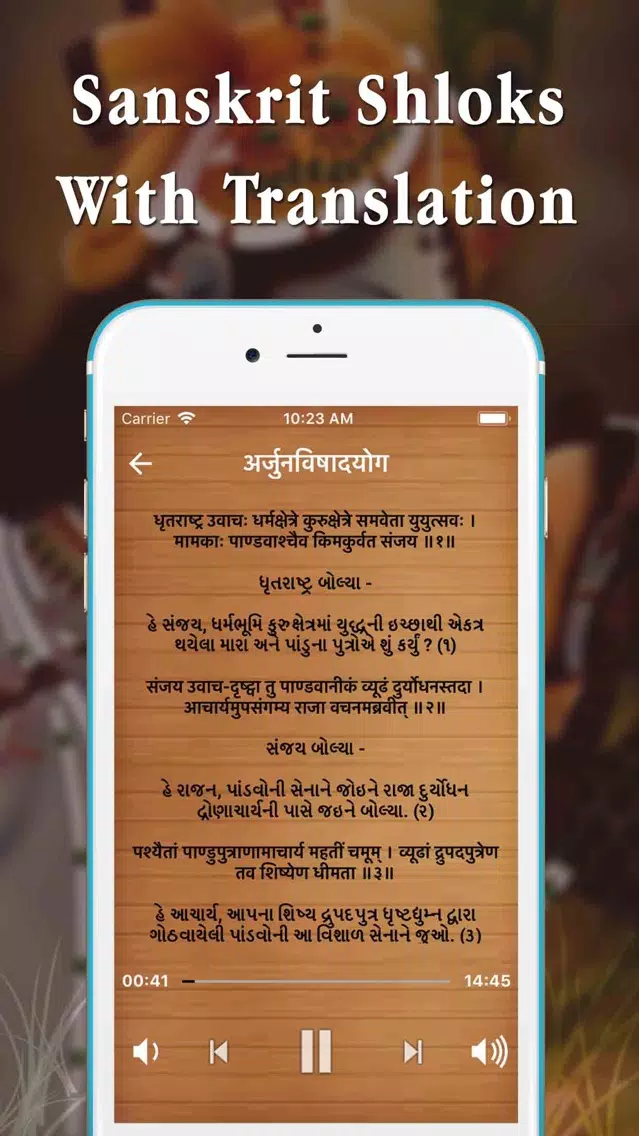 Sanskrit Shloks
With Translation
Carrier
10:23 AM
अर्जुनविषादयोग
धृतराष्ट्र उवाचः धर्मक्षेत्रे कुरुक्षेत्रे समवेता युयुत्सवः ।
मामकाः पाण्डवाश्चैव किमकुर्वत संजय ॥१॥
ધૃતરાષ્ટ્ર બોલ્યા -
હે સંજય, ધર્મભૂમિ કુરુક્ષેત્રમાં યુદ્ધની ઇચ્છાથી એકત્ર
થયેલા મારા અને પાંડુના પુત્રોએ શું કર્યું ? (૧)
संजय उवाच-दृष्ट्वा तु पाण्डवानीकं व्यूढं दुर्योधनस्तदा ।
आचार्यमुपसंगम्य राजा वचनमब्रवीत् ॥२॥
સંજય બોલ્યા -
હે રાજન, પાંડવોની સેનાને જોઇને રાજા દુર્યોધન
દ્રોણાચાર્યની પાસે જઇને બોલ્યા. (૨)
पश्यैतां पाण्डुपुत्राणामाचार्य महतीं चमूम् । व्यूढां द्रुपदपुत्रेण
तव शिष्येण धीमता ॥३॥
હે આચાર્ય, આપના શિષ્ય દ્રુપદપુત્ર ધૃષ્ટદ્યુમ્ન દ્વારા
ગોઠવાયેલી પાંડવોની આ વિશાળ સેનાને જૂઓ. (૩)
00:41
14:45